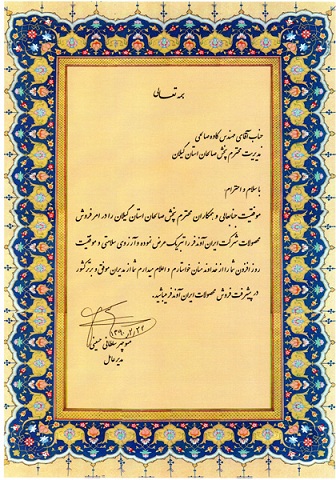 بسمه تعالی
جناب آقای مهندس کاوه صالحی
مدیریت محترم پخش صالحان استان گیلان
با سلام و احترام
موفقیت جنابعالی و همکاران محترم پخش صالحان استان گیلان را در امر فروش
محصولات شرکت ایران آوندفر را تبریک عرض نموده و آرزوی سلامتی و موفقیت
روز افزون شما را از خداوند منان خواستارم و اعلام میدارم شما از مدیران موفق و برتر کشور
در پیشرفت فروش محصولات ایران آوندفر میباشید.
۱۳۹۰/۲/۲۲
منوچهر سلطانی حسینی
مدیر عامل